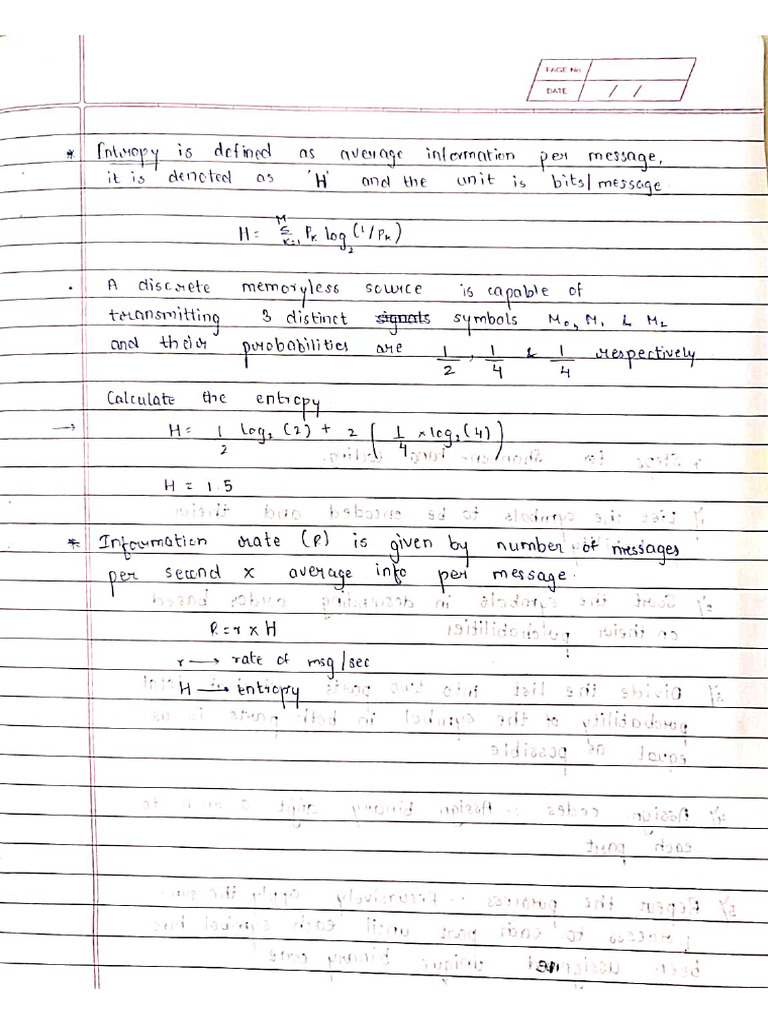 PAGE No
DATE / /
* Entropy is defined as average information per message,
it is denoted as 'H' and the unit is bits/message
H = M Σ K=1 Pk log2 (1/Pk)
. A discrete memoryless source is capable of
transmitting 3 distinct signals symbols M0, M1 & M2
and their probabilities are 1/2, 1/4 & 1/4 respectively
Calculate the entropy
→ H = 1/2 log2 (2) + 2 ( 1/4 × log2 (4) )
H = 1.5
* Information rate (R) is given by number of messages
per second x average info per message
R = r x H
r → rate of msg/sec
H → entropy